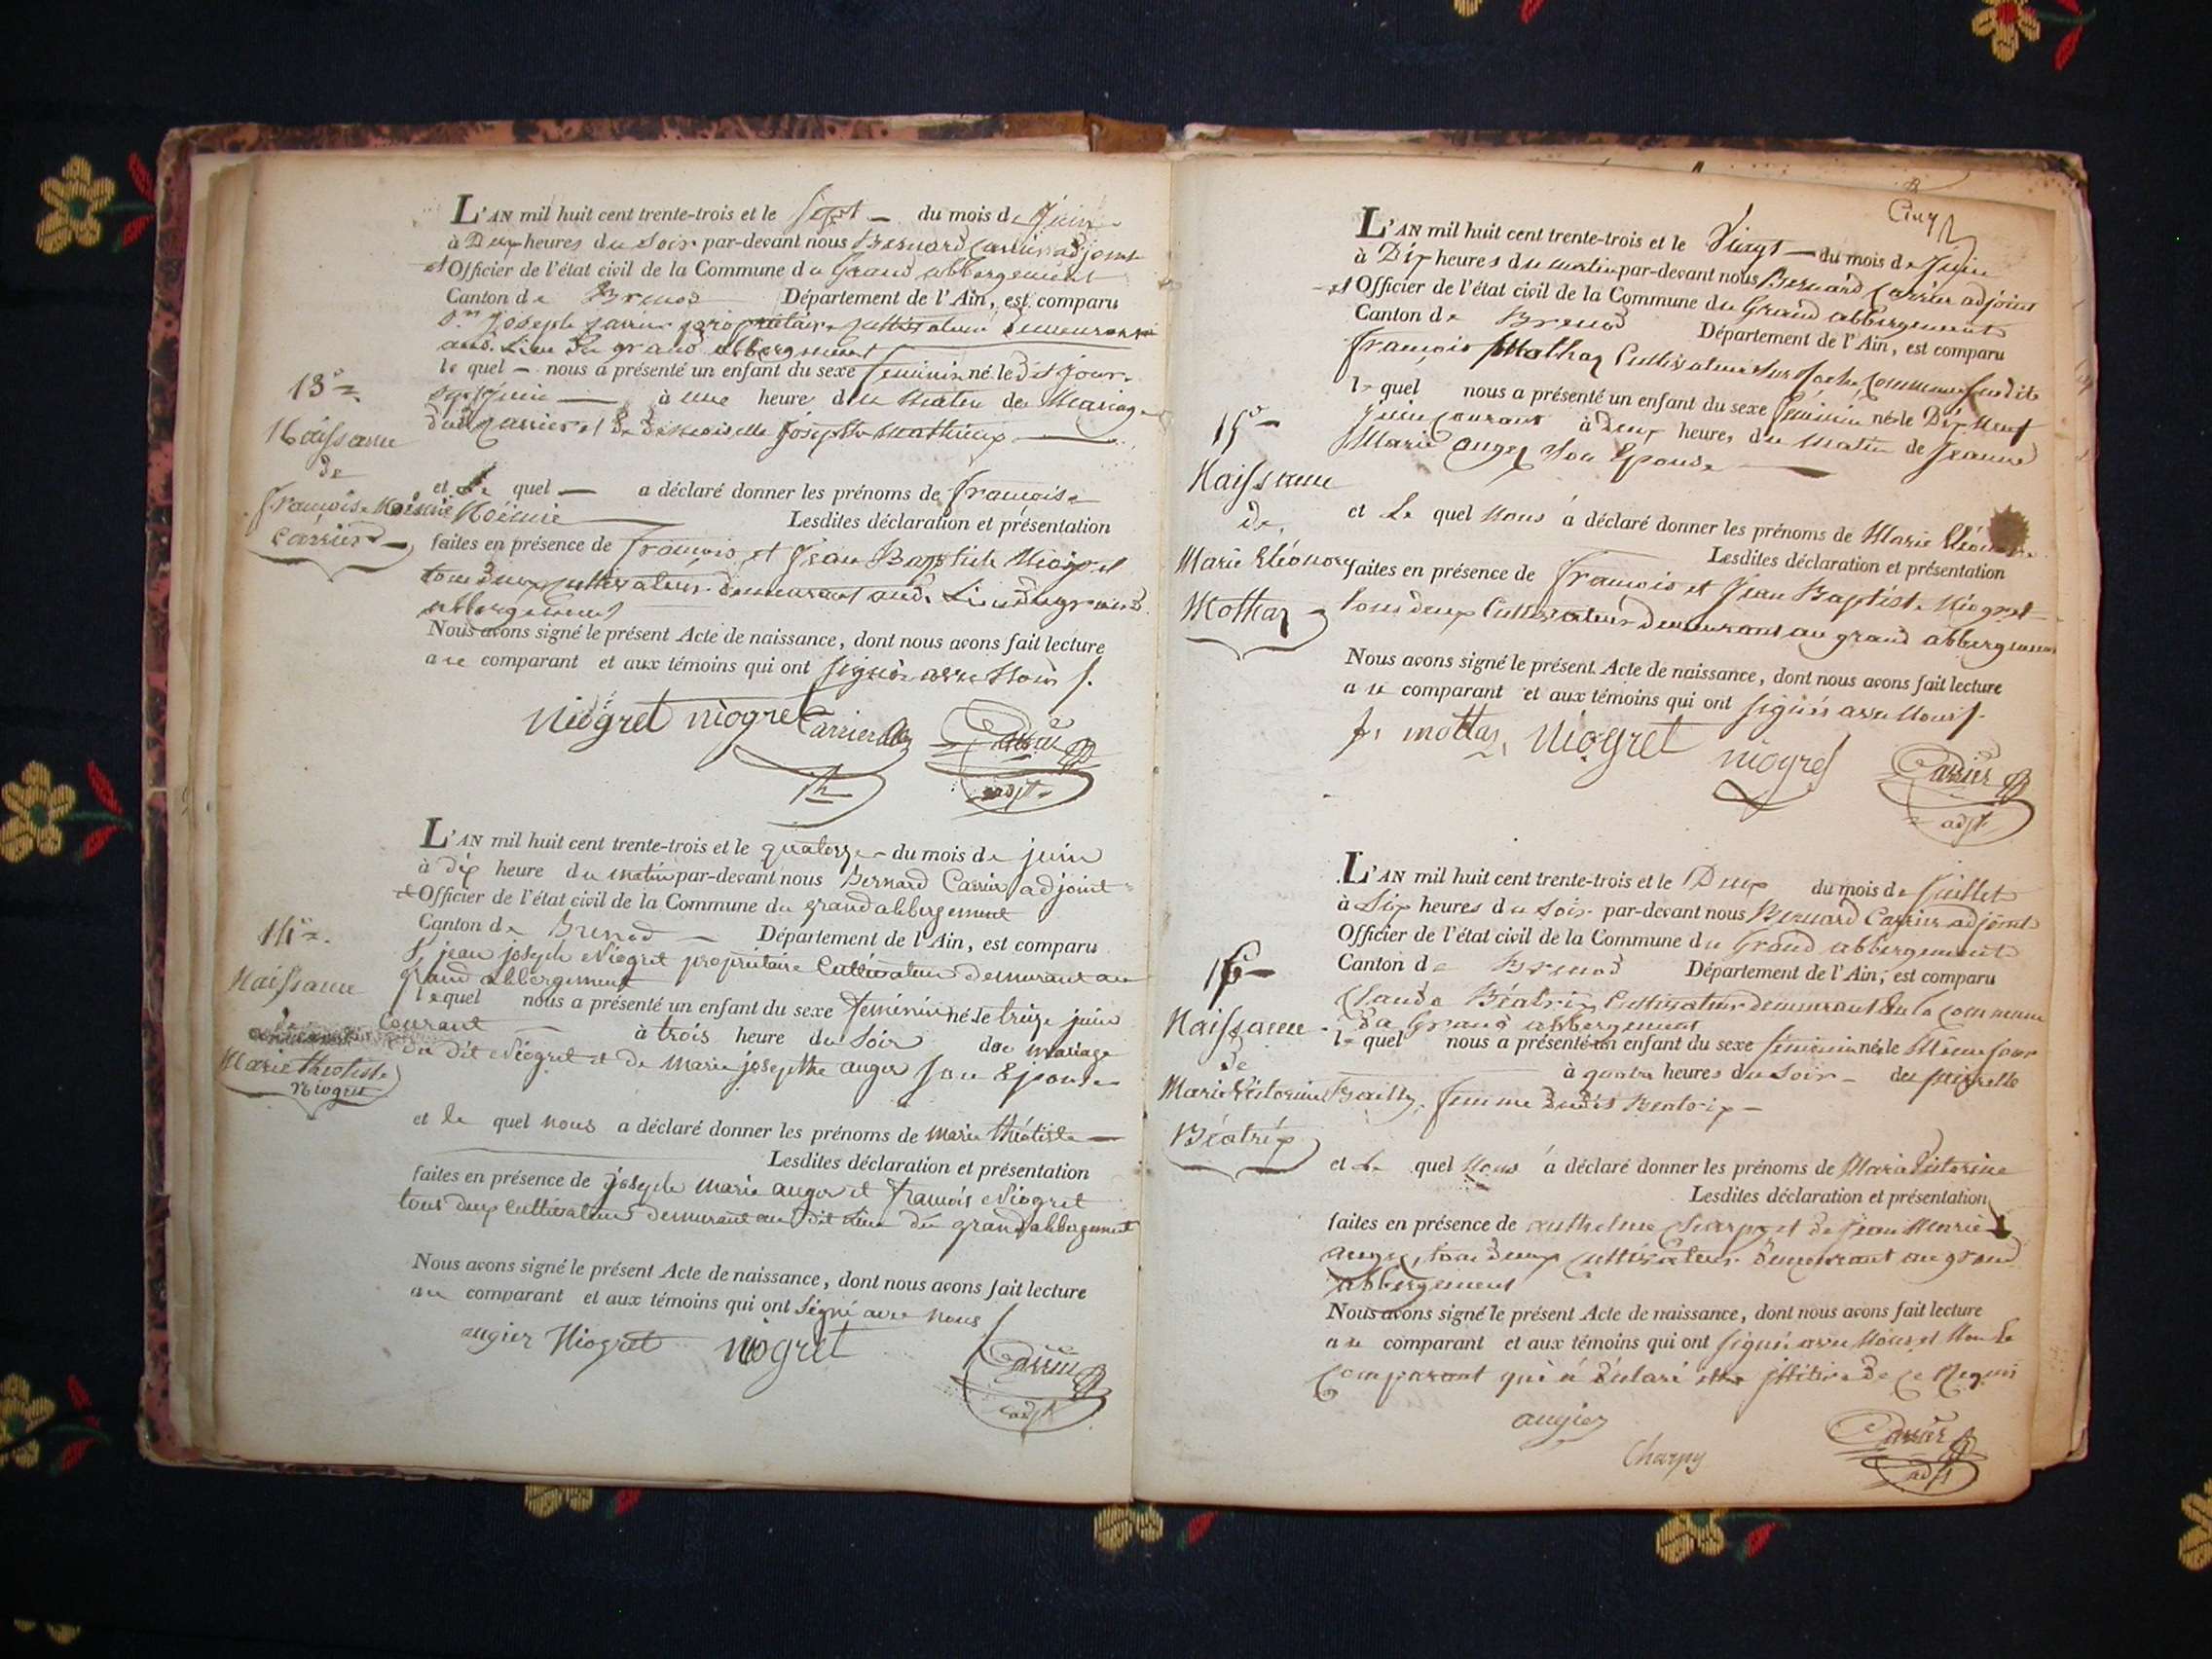 L'AN mil huit cent trente-trois et le Sept — du mois de Juin
à Deux heures du Soir par-devant nous Bernard Carrier adjoint
et Officier de l'état civil de la Commune du Grand abbergement
Canton de Brenod Département de l'Ain, est comparu
Sr. Joseph Carrier propriétaire Cultivateur demeurant
aud. Lieu du grand abbergement
le quel — nous a présenté un enfant du sexe feminin né le dit jour
Sept Juin — à une heure du Matin de Mariage
dudit Carrier et de demoiselle Josephte Mathieux —
13e
Naissance
de
Françoise Noémie
Carrier
et Le quel — a déclaré donner les prénoms de Françoise
Noémie — Lesdites déclaration et présentation
faites en présence de François et Jean Baptiste Niogret
tous deux cultivateurs demeurant aud. Lieu du grand
abbergement
Nous avons signé le présent Acte de naissance, dont nous avons fait lecture
au comparant et aux témoins qui ont Signés avec Nous
Niogret niogret Carrier Carrier
adjt
L'AN mil huit cent trente-trois et le quatorze — du mois de juin
à dix heure du matin par-devant nous Bernard Carrier adjoint
et Officier de l'état civil de la Commune du grand abbergement
Canton de Brenod — Département de l'Ain, est comparu
S. jean joseph Niogret propriétaire Cultivateur demurant au
grand abbergement
lequel nous a présenté un enfant du sexe feminin né le treize juin
Courant — à trois heure du Soir de mariage
du dit Niogret et de marie josephte auger son Epouse
14e
Naissance
de
Marie théotiste
Niogret
et le quel nous a déclaré donner les prénoms de marie théotiste —
Lesdites déclaration et présentation
faites en présence de joseph marie auger et françois Niogret
tous deux cultivateurs demurant au dit Lieu du grand abbergement
Nous avons signé le présent Acte de naissance, dont nous avons fait lecture
au comparant et aux témoins qui ont Signé avec nous
augier Niogret niogret Carrier
adjt
Cinq
L'AN mil huit cent trente-trois et le Vingt — du mois de Juin
à Dix heures du matin par-devant nous Bernard Carrier adjoint
et Officier de l'état civil de la Commune du Grand abbergement
Canton de Brenod Département de l'Ain, est comparu
François Mothaz Cultivateur Commune
le quel nous a présenté un enfant du sexe feminin né le Dix Neuf
Juin Courant à deux heures du Matin de Jeanne
Marie auger Son Epouse —
15e
Naissance
de
Marie Eléonore
Mothaz
et Le quel Nous a déclaré donner les prénoms de Marie Eléonore
Lesdites déclaration et présentation
faites en présence de François et Jean Baptiste Niogret
tous deux Cultivateurs demeurant au grand abbergement
Nous avons signé le présent Acte de naissance, dont nous avons fait lecture
au comparant et aux témoins qui ont Signés avec Nous
f. mottaz Niogret niogret Carrier
adjt
L'AN mil huit cent trente-trois et le Deux du mois de Juillet
à Six heures du Soir par-devant nous Bernard Carrier adjoint
Officier de l'état civil de la Commune du Grand abbergement
Canton de Brenod Département de l'Ain, est comparu
Claude Béatrix Cultivateur demeurant en la Commune
du Grand abbergement
le quel nous a présenté un enfant du sexe feminin né le Même jour
à quatre heures du Soir — de
Bailly, femme dudit Béatrix —
16e
Naissance
de
Marie Victorine
Béatrix
et Le quel Nous a déclaré donner les prénoms de Marie Victorine
Lesdites déclaration et présentation
faites en présence de anthelme Charpy et de Jean Marie
augier, tous deux cultivateurs demeurant au grand
abbergement
Nous avons signé le présent Acte de naissance, dont nous avons fait lecture
au comparant et aux témoins qui ont Signé avec Nous et Non Le
Comparant qui a déclaré être illitiré de ce Requis
augier
Charpy
Carrier
adjt